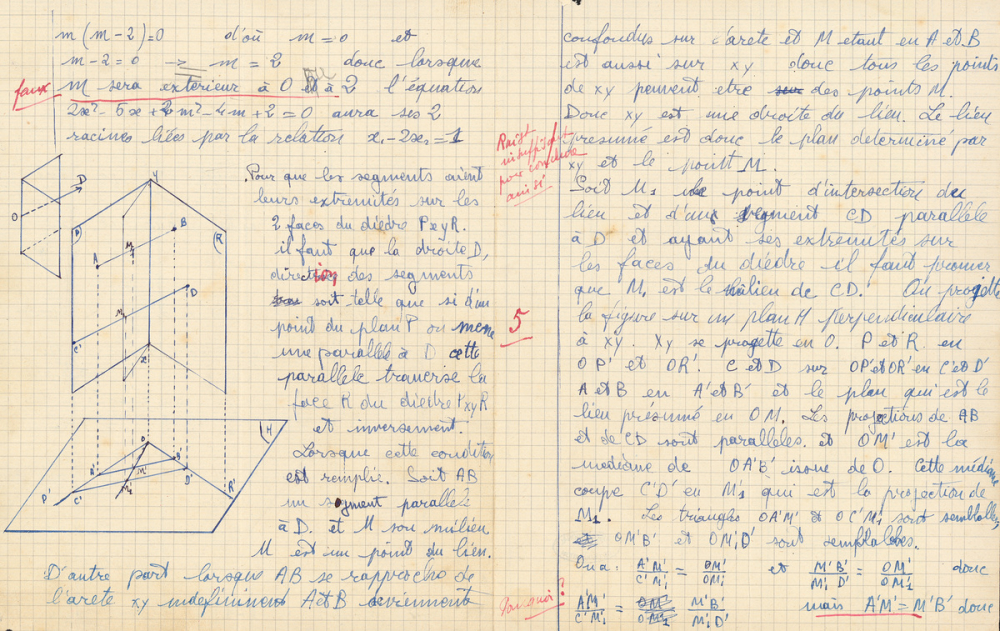 m(m-2)=0 d'où m=0 et
m-2=0 → m=2 donc lorsque
faux m sera extérieur à 0 et à 2 l'équation
2x²-5x+2m²-4m+2=0 aura ses 2
racines liées par la relation x₁-2x₂=1
Pour que les segments aient
leurs extremités sur les
2 faces du dièdre PxyR.
il faut que la droite D,
direction des segments
soit telle que si d'un
point du plan P on mene
une parallèle à D cette
parallele traverse la
face R du diedre PxyR
et inversement.
Lorsque cette condition
est remplie. Soit AB
un segment parallèle
à D. et M son milieu
M est un point du lieu.
D'autre part lorsque AB se rapproche de
l'arete xy indefiniment A et B deviennent
D
O
y
P
R
A
M
B
D
M₁
C
x
H
O
A'
M'
B'
P'
C'
M'₁
D'
R'
confondus sur l'arete et M etant en A et B
est aussi sur xy donc tous les points
de xy peuvent etre des points M.
Donc xy est une droite du lieu. Le lieu
présumé est donc le plan determiné par
xy et le point M.
Raist
insuffisant
pour conclure
ainsi
Soit M₁ le point d'intersection du
lieu et d'un segment CD parallèle
à D et ayant ses extremités sur
les faces du dièdre il faut prouver
que M₁ est le milieu de CD. On projette
5
la figure sur un plan H perpendiculaire
à xy. Xy se projette en O. P et R en
OP' et OR'. C et D sur OP' et OR' en C' et D'
A et B en A' et B' et le plan qui est le
lieu présumé en OM. Les projections de AB
et de CD sont paralleles. et O'M' est la
mediane de OA'B' issue de O. Cette médiane
coupe C'D' en M'₁ qui est la projection de
M₁. Les triangles OA'M' et OC'M'₁ sont semblables
OM'B' et OM'₁D' sont semblables.
On a: A'M'/C'M'₁ = OM'/OM'₁ et M'B'/M'₁D' = OM'/OM'₁ donc
Pourquoi?
A'M'/C'M'₁ = M'B'/M'₁D' mais A'M'=M'B' donc